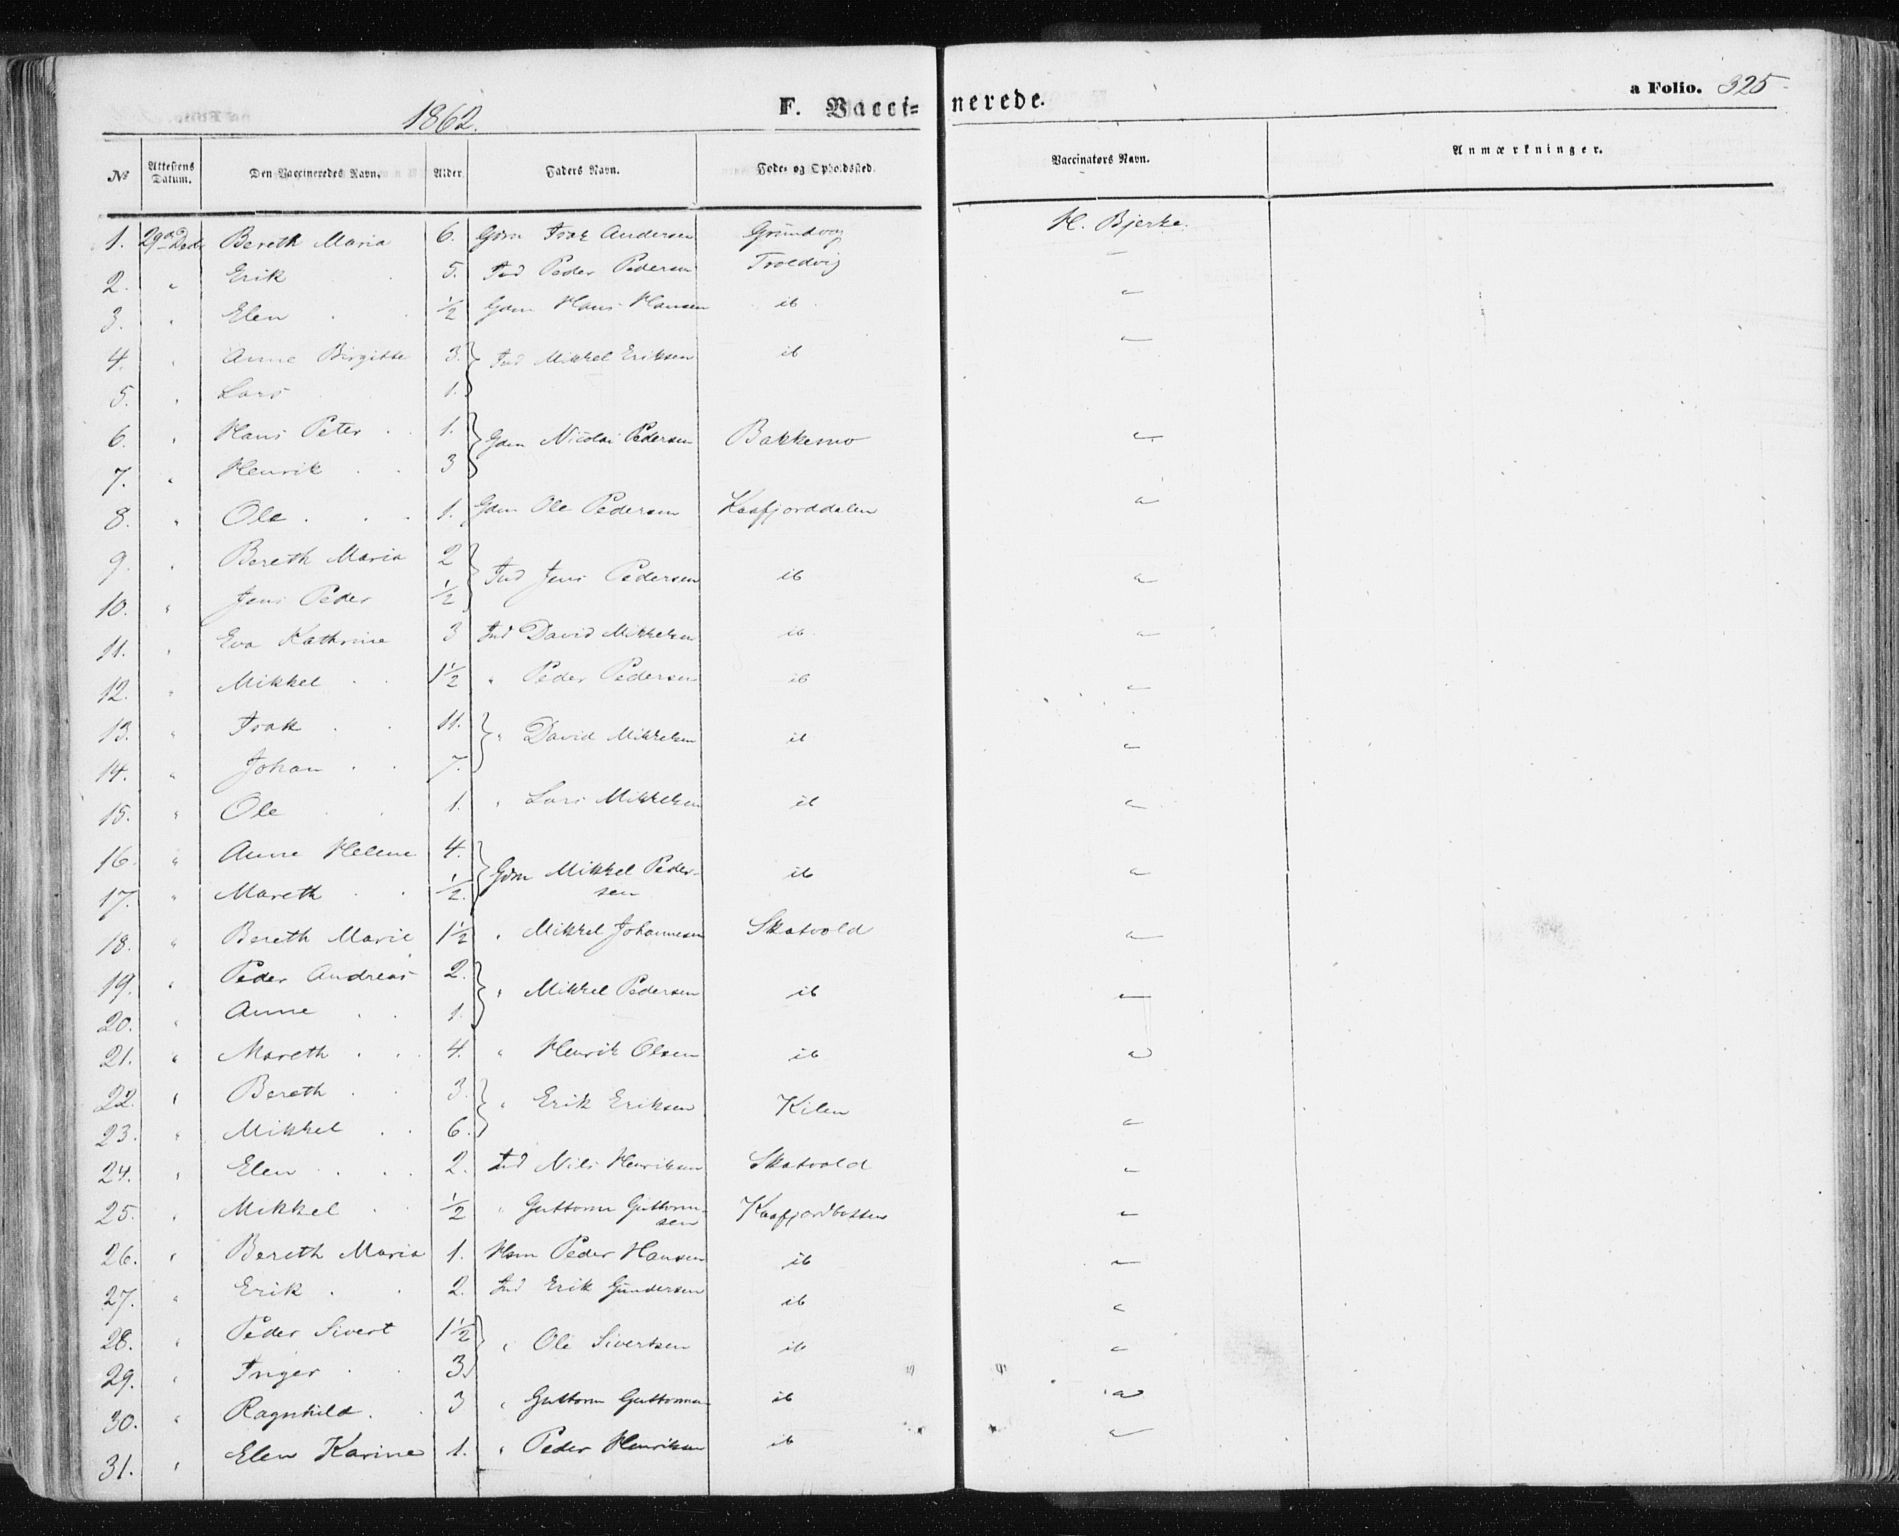 1862. F. Vacci- nerede. a Folio. 325
No Attestens Datum. Den Vaccineredes Navn. Alder. Faders Navn. Føde- og Opholdssted. Vaccinators Navn. Anmærkninger.
1. 29de Decbr Bereth Maria 6. Gdm Isak Andersen Grundvog H. Bjerke.
2. " Erik 5. Ind Peder Pedersen Troldvig "
3. " Elen 1/2 Gdm Hans Hansen ib "
4. " Anne Birgitte 3. Ind Mikkel Eriksen ib "
5. " Lars 1.
6. " Hans Peter 1. Gdm Nicolai Pedersen Bakkemo "
7. " Henrik 3
8. " Ole 1. Gdm Ole Pedersen Kaafjorddalen "
9. " Bereth Maria 2 Ind Jens Pedersen ib "
10. " Jens Peder 1/2
11. " Eva Kathrine 3 Ind David Mikkelsen ib. "
12. " Mikkel 1 1/2 " Peder Pedersen ib "
13. " Isak 11. " David Mikkelsen ib "
14. " Johan 7.
15. " Ole 1. " Lars Mikkelsen ib "
16. " Anne Helene 4. Gdm Mikkel Peder-
17. " Mareth 1/2. sen ib "
18. " Bereth Marie 1 1/2 " Mikkel Johannesen Skatvold "
19. " Peder Andreas 2. " Mikkel Pedersen ib "
20. " Anne 1.
21. " Mareth 4. " Henrik Olsen ib "
22. " Bereth 3. " Erik Eriksen Kilen "
23. " Mikkel 6.
24. " Elen 2. Ind Nils Henriksen Skatvold "
25. " Mikkel 1/2 " Guttorm Guttorm-
sen Kaafjordbotten "
26. " Bereth Maria 1. Hsm Peder Hansen ib "
27. " Erik 2. Ind Erik Gundersen ib "
28. " Peder Sivert 1 1/2 " Ole Sivertsen ib "
29. " Inger 3.
30. " Ragnhild 3 " Guttorm Guttormsen ib "
31. " Elen Karine 1. " Peder Henriksen ib "